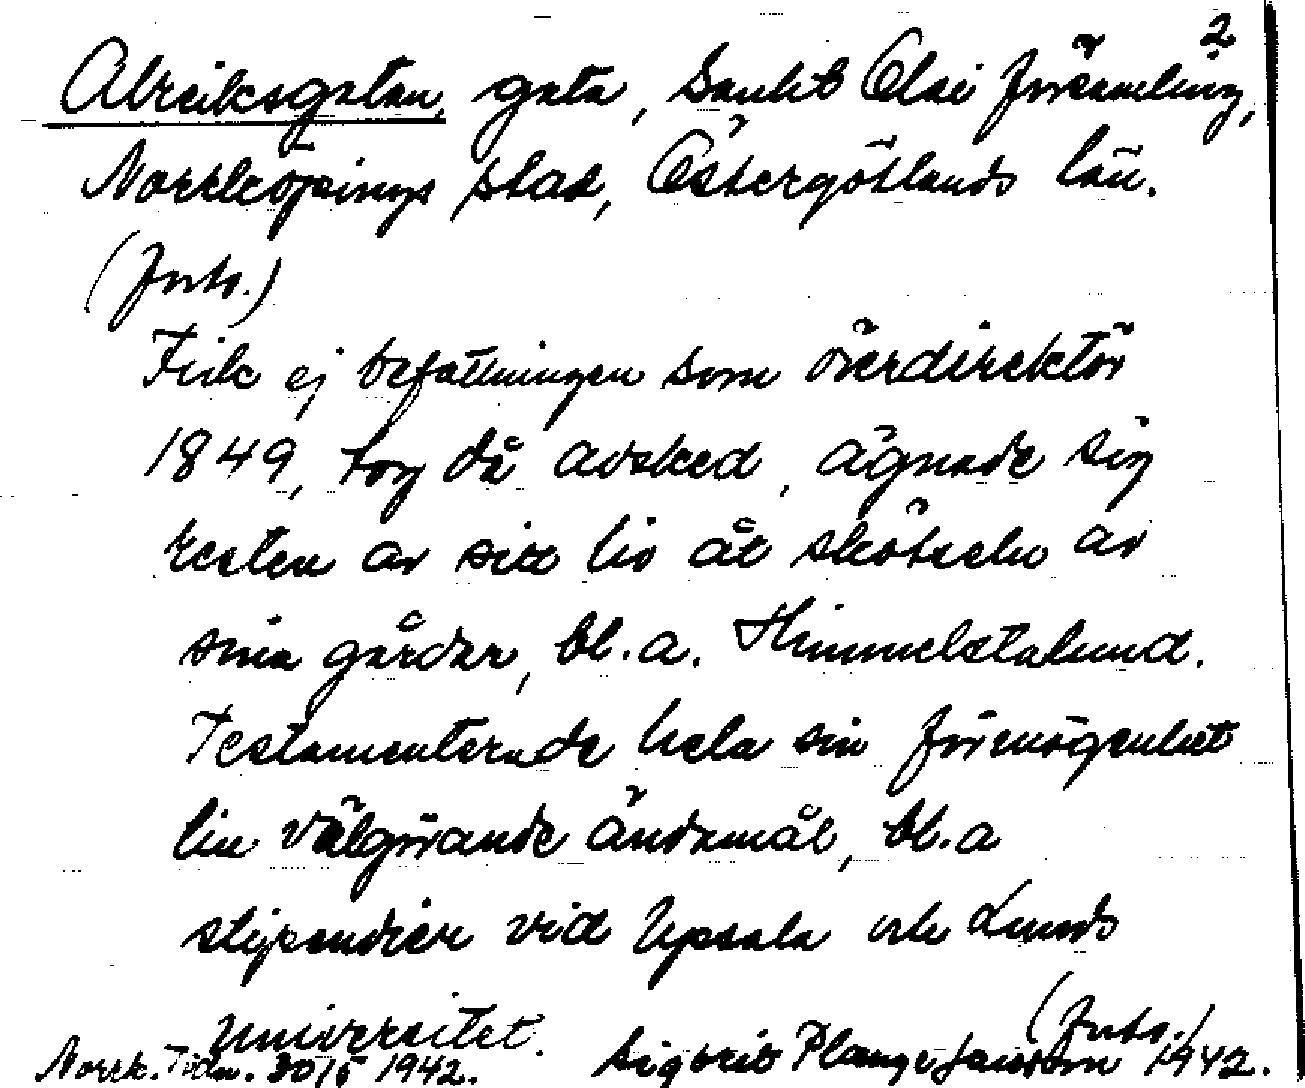 2
Alreiksgatan, gata, Sankt Olai församling,
Norrköpings stad, Östergötlands län.
(forts.)
Fick ej befattningen som överdirektör
1849, tog då avsked, ägnade sig
resten av sitt liv åt skötseln av
sina gårdar, bl.a. Himmelstalund.
Testamenterade hela sin förmögenhet
till välgörande ändamål, bl.a
stipendier vid Upsala och Lunds
Universitet.
(forts.)
Norrk. Tidn. 30/5 1942. Sigbrit Plange Jansson 1942.